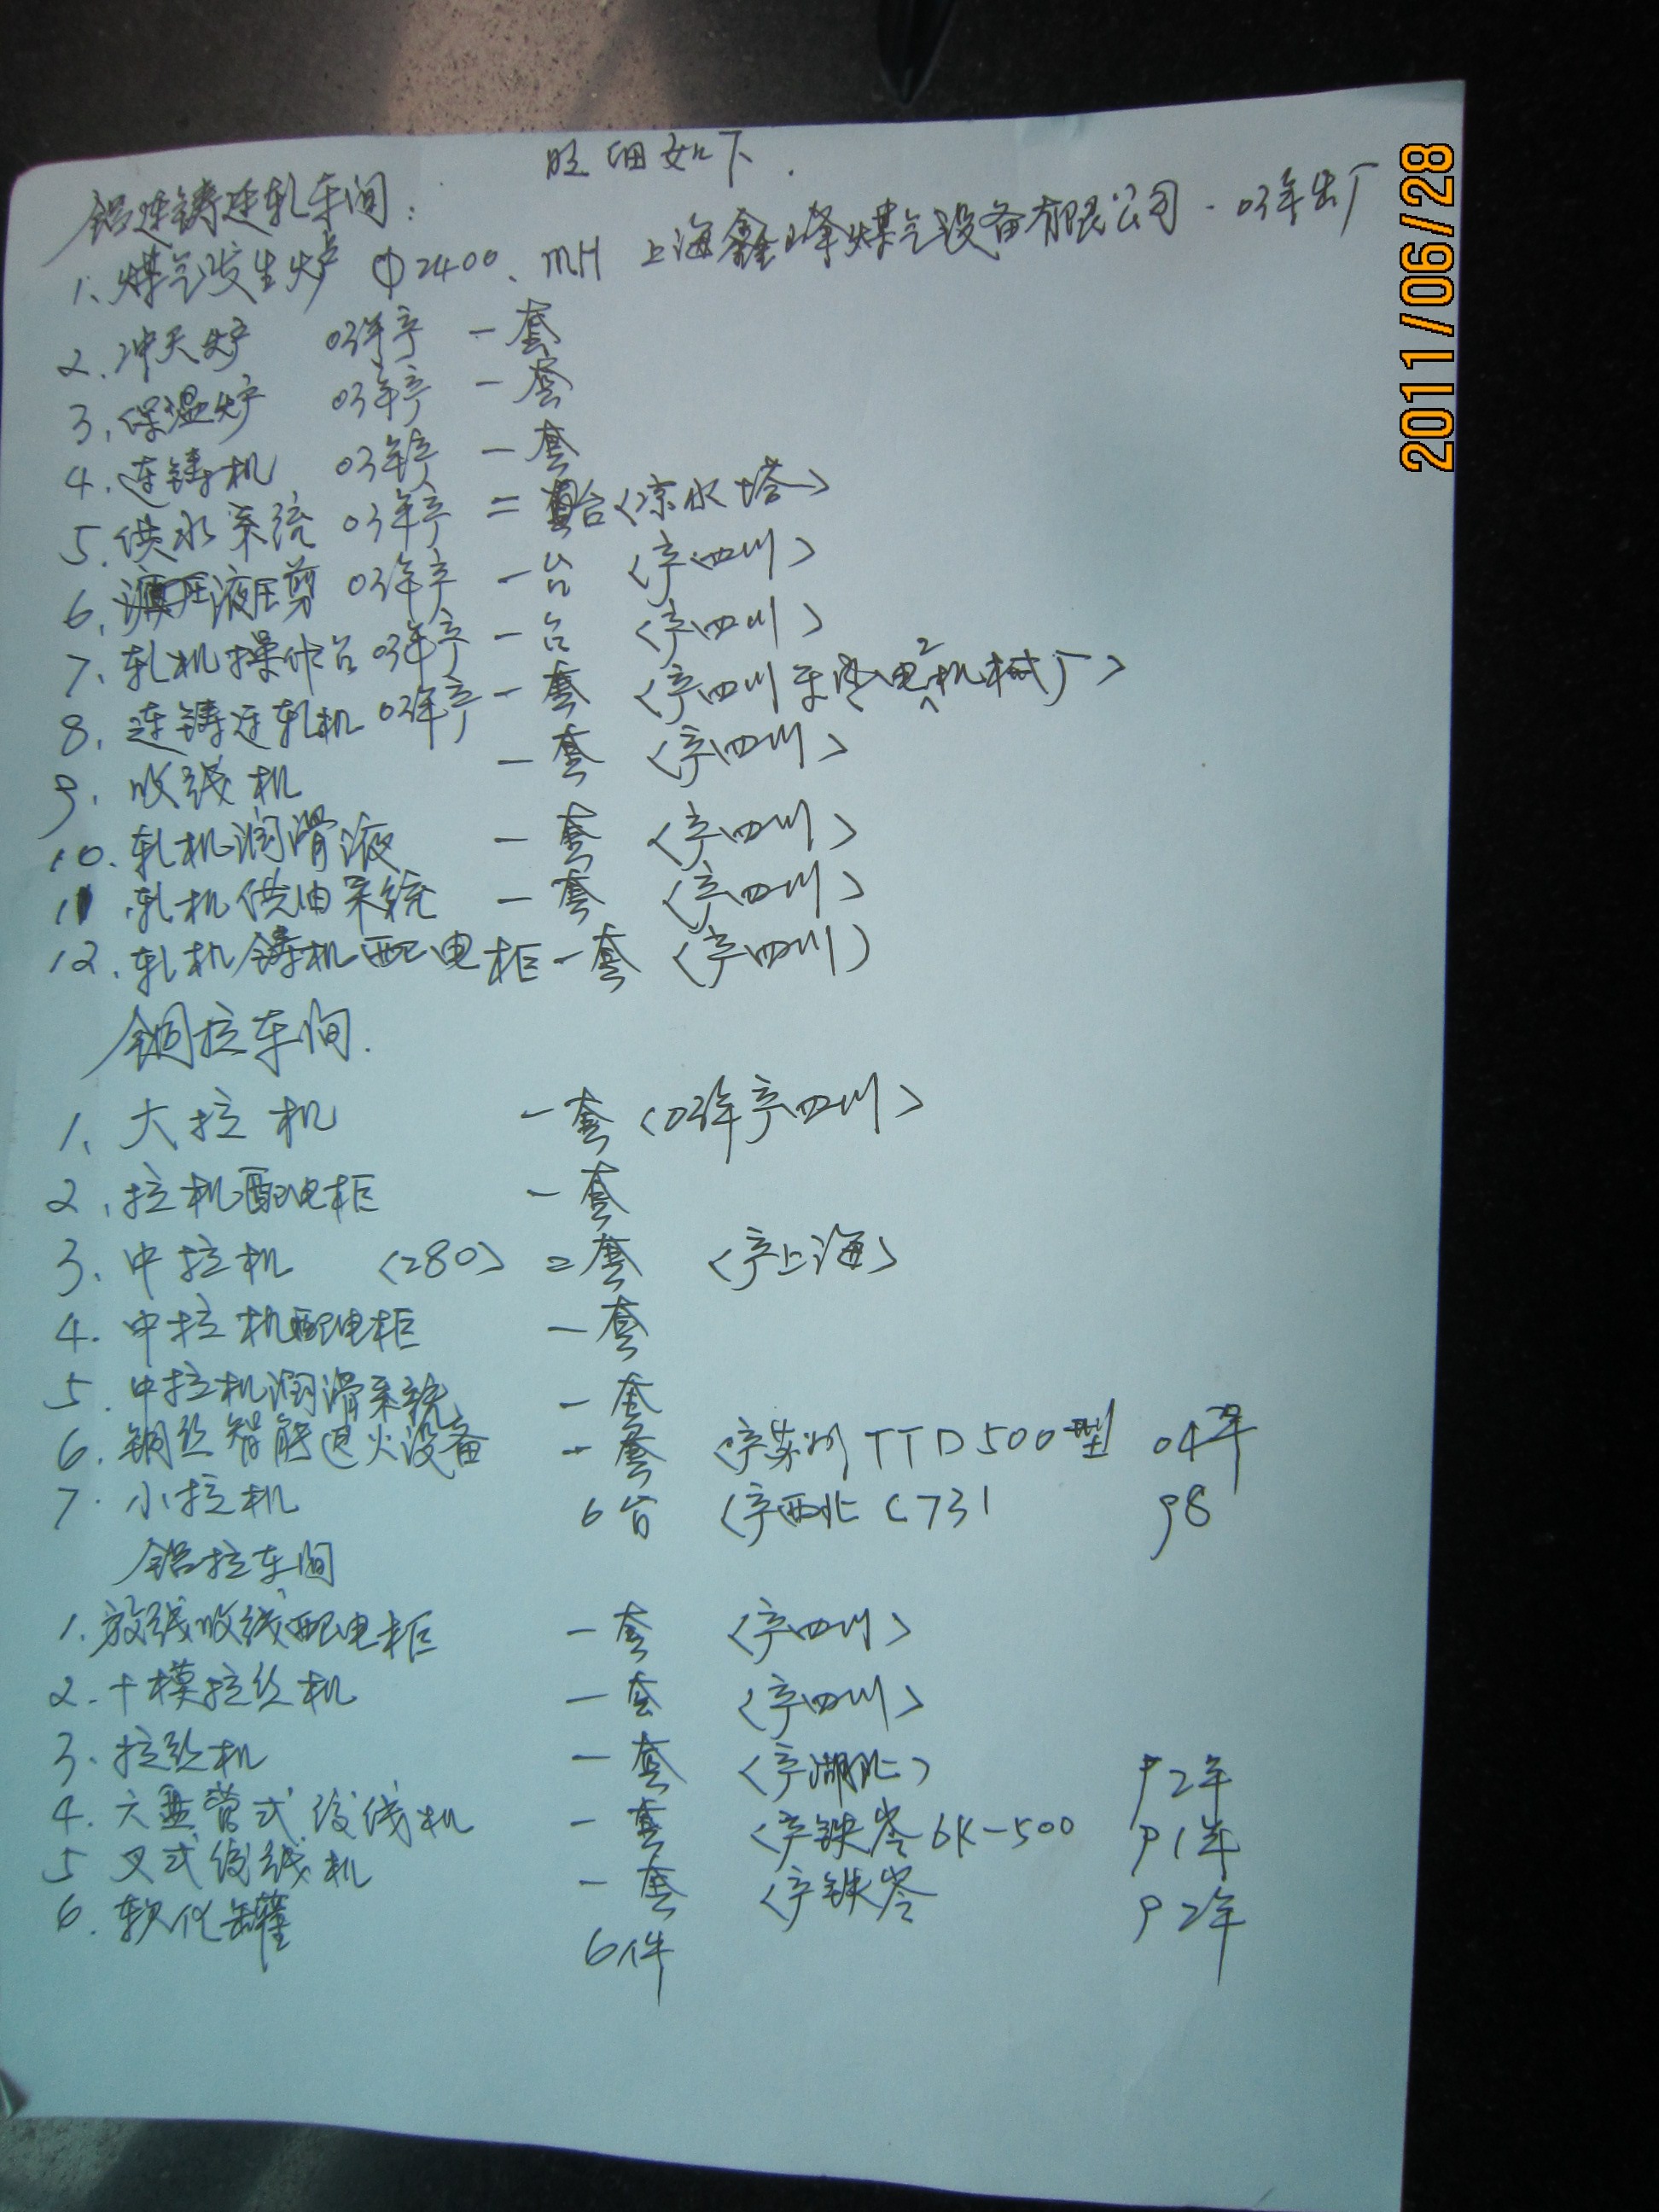 明细如下.
铝连铸连轧车间:
1、煤气发生炉 φ2400、mH 上海鑫峰煤气设备有限公司.03年出厂
2.冲天炉 03年产 一套
3,保温炉 03年产 一套
4.连铸机 03年产 一套
5.供水系统 03年产 二台<凉水塔>
6,液压剪 03年产 一台 <产四川>
7,轧机操作台 03年产 一台 <产四川>
8,连铸连轧机 03年产 一套 <产四川 电2机械厂>
9,收线机 一套 <产四川>
10.轧机润滑液 一套 <产四川>
11.轧机供油系统 一套 <产四川>
12.轧机铸机配电柜一套 <产四川>
铜拉车间.
1、大拉机 一套<03年产四川>
2,拉机配电柜 一套
3.中拉机 <280> 二套 <产上海>
4.中拉机配电柜 一套
5.中拉机润滑系统 一套
6.铜丝智能退火设备 一套 <产苏州TTD500型 04年
7.小拉机 6台 <产西北C731 98
铝拉车间
1.放线收线配电柜 一套 <产四川>
2.十模拉丝机 一套 <产四川>
3.拉丝机 一套 <产湖北> 92年
4.六盘管式绞线机 一套 <产铁岭6K-500 91年
5 叉式绞线机 一套 <产铁岭 92年
6.软化罐 6件
2011/06/28